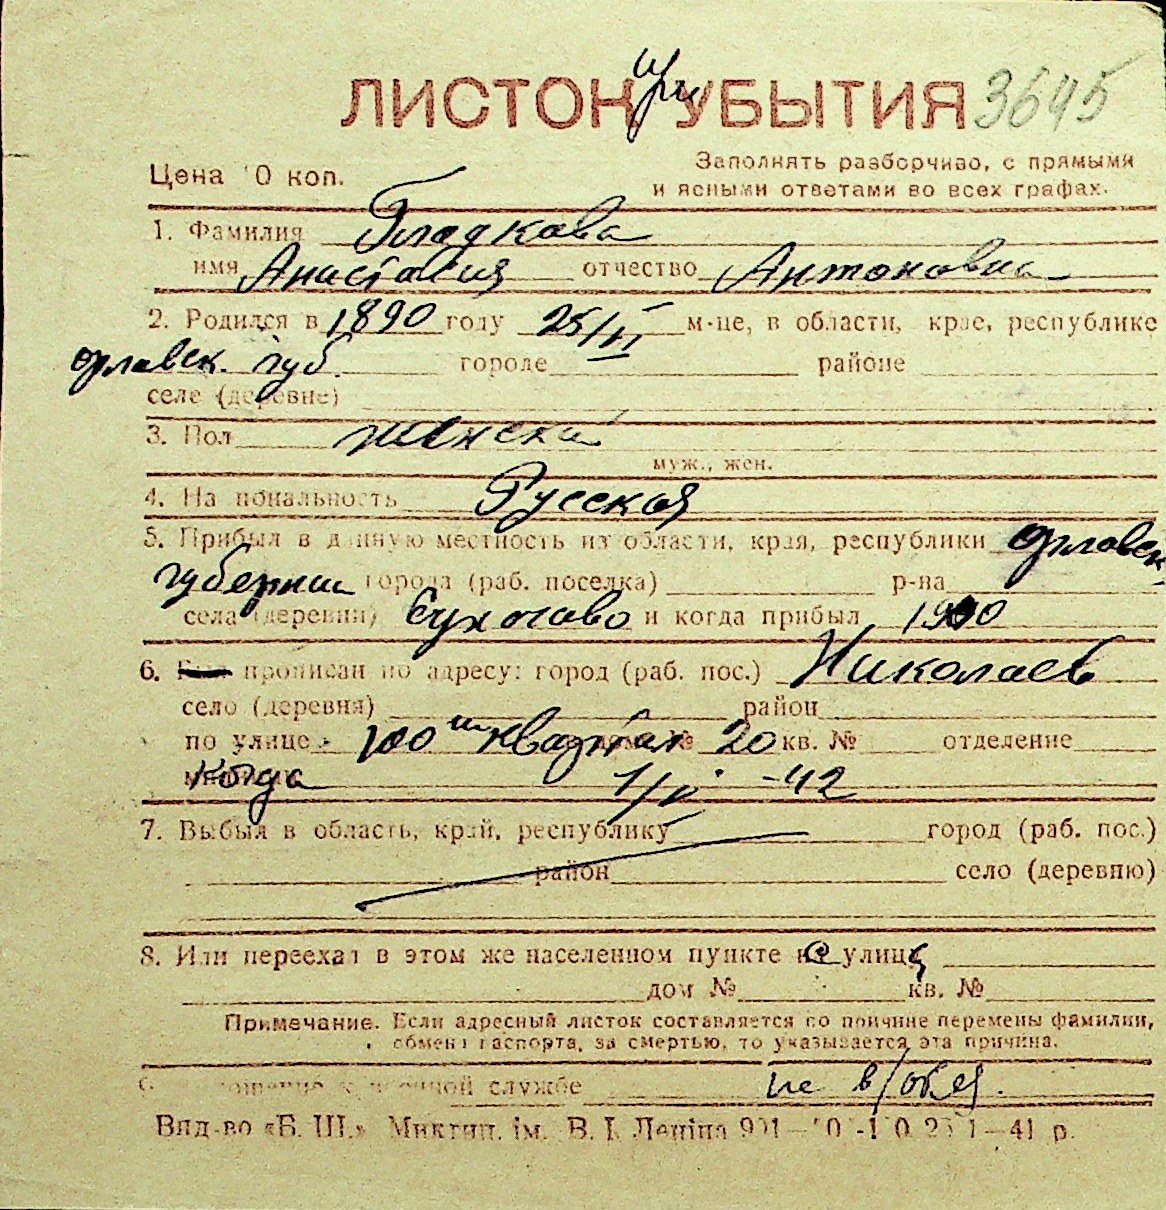 ЛИСТОК при УБЫТИЯ 3645
Цена 10 коп.
Заполнять разборчиво, с прямыми
и ясными ответами во всех графах.
1. Фамилия Гладкова
имя Анастасия отчество Антоновна
2. Родился в 1890 году 25/VI м-це, в области, крае, республике
орловск. губ. городе районе
селе (деревне)
3. Пол женский
муж., жен.
4. Национальность Русская
5. Прибыл в данную местность из области, края, республики орловск.
губернии города (раб. поселка) р-на
села (деревни) и когда прибыл 1910
6. Был прописан по адресу: город (раб. пос.) Николаев
село (деревня) район
по улице 100 ш квартал дом № 20 кв. № отделение
когда -42
7. Выбыл в область, край, республику город (раб. пос.)
район село (деревню)
8. Или переехал в этом же населенном пункте не улице
дом № кв. №
Примечание. Если адресный листок составляется по причине перемены фамилии,
обмена паспорта, за смертью, то указывается эта причина.
9. Отношение к военной службе не в/обяз.
Вид-во «Б. Ш.» Миктип. ім. В. І. Леніна